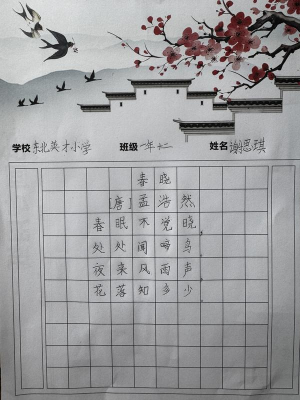 学校 东北英才小学 班级 一年十二 姓名 谢恩琪
春晓
[唐]孟浩然
春眠不觉晓,
处处闻啼鸟。
夜来风雨声
花落知多少